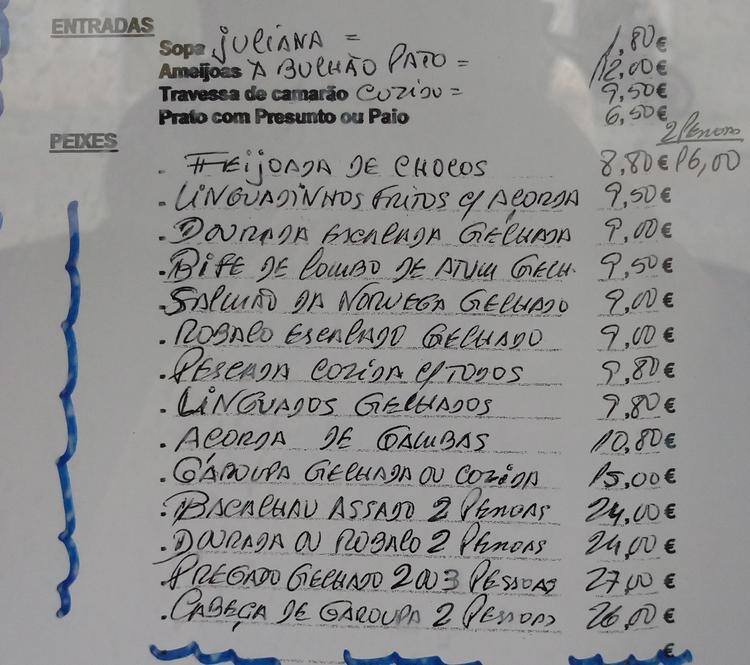 ENTRADAS
Sopa JULIANA = 1,80€
Ameijoas À BULHÃO PATO = 12,00€
Travessa de camarão COZIDO = 9,50€
Prato com Presunto ou Paio 6,50€
PEIXES 2 PESSOAS
. FEIJOADA DE CHOCOS 8,80€ 16,00
. LINGUADINHOS FRITOS C/ AÇORDA 9,50€
. DOURADA ESCALADA GRELHADA 9,00€
. BIFE DE LOMBO DE ATUM GRELH. 9,50€
. SALMÃO DA NORUEGA GRELHADO 9,00€
. ROBALO ESCALADO GRELHADO 9,00€
. PESCADA COZIDA C/TODOS 9,80€
. LINGUADOS GRELHADOS 9,80€
. AÇORDA DE GAMBAS 10,80€
. GAROUPA GRELHADA OU COZIDA 15,00€
. BACALHAU ASSADO 2 PESSOAS 24,00€
. DOURADA OU ROBALO 2 PESSOAS 24,00€
. PREGADO GRELHADO 2 OU 3 PESSOAS 27,00€
. CABEÇA DE GAROUPA 2 PESSOAS 26,00€
€